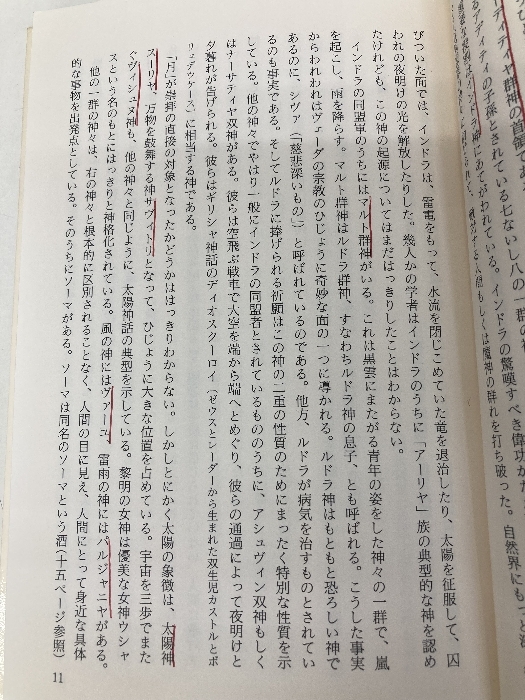 ーディティヤ群神の首領であ
びついた面では、インドラは、雷電をもって、水流を閉じこめていた竜を退治したり、太陽を征服して、囚
われの夜明けの光を解放したりした。幾人かの学者はインドラのうちに「アーリヤ」族の典型的な神を認め
たけれども、この神の起源についてはまだはっきりしたことはわからない。
インドラの同盟軍のうちにはマルト群神がいる。これは黒雲にまたがる青年の姿をした神々の一群で、嵐
を起こし、雨を降らす。マルト群神はルドラ群神、すなわちルドラ神の息子、とも呼ばれる。こうした事実
からわれわれはヴェーダの宗教のひじょうに奇妙な面の一つに導かれる。ルドラ神はもともと恐ろしい神で
あるのに、シヴァ(「慈悲深いもの」)と呼ばれているのである。他方、ルドラが病気を治すものとされてい
るのも事実である。そしてルドラに捧げられる祈願はこの神の二重の性質のためにまったく特別な性質を示
している。他の神々でやはり一般にインドラの同盟者とされているもののうちに、アシュヴィン双神もしく
はナーサティヤ双神がある。彼らは空飛ぶ戦車で大空を端から端へとめぐり、彼らの通過によって夜明けと
夕暮れが告げられる。彼らはギリシャ神話のディオスクーロイ(ゼウストとレーダーから生まれた双生児カストルとポ
リュデウケース)に相当する神である。
「月」が崇拝の直接の対象となったかどうかははっきりわからない。しかしとにかく太陽の象徴は、太陽神
スーリヤ、万物を鼓舞する神サヴィトリとなって、ひじょうに大きな位置を占めている。宇宙を三歩でまた
ぐヴィシュヌ神も、他の神々と同じように、太陽神話の典型を示している。黎明の女神は優美な女神ウシャ
スという名のもとにはっきりと神格化されている。風の神にはヴァーユ、雷雨の神にはパルジャニヤがある。
他の一群の神々は、右の神々と根本的に区別されることなく、人間の目に見え、人間にとって身近な具体
的な事物を出発点としている。そのうちにソーマがある。ソーマは同名のソーマという酒(十五ページ参照)
11